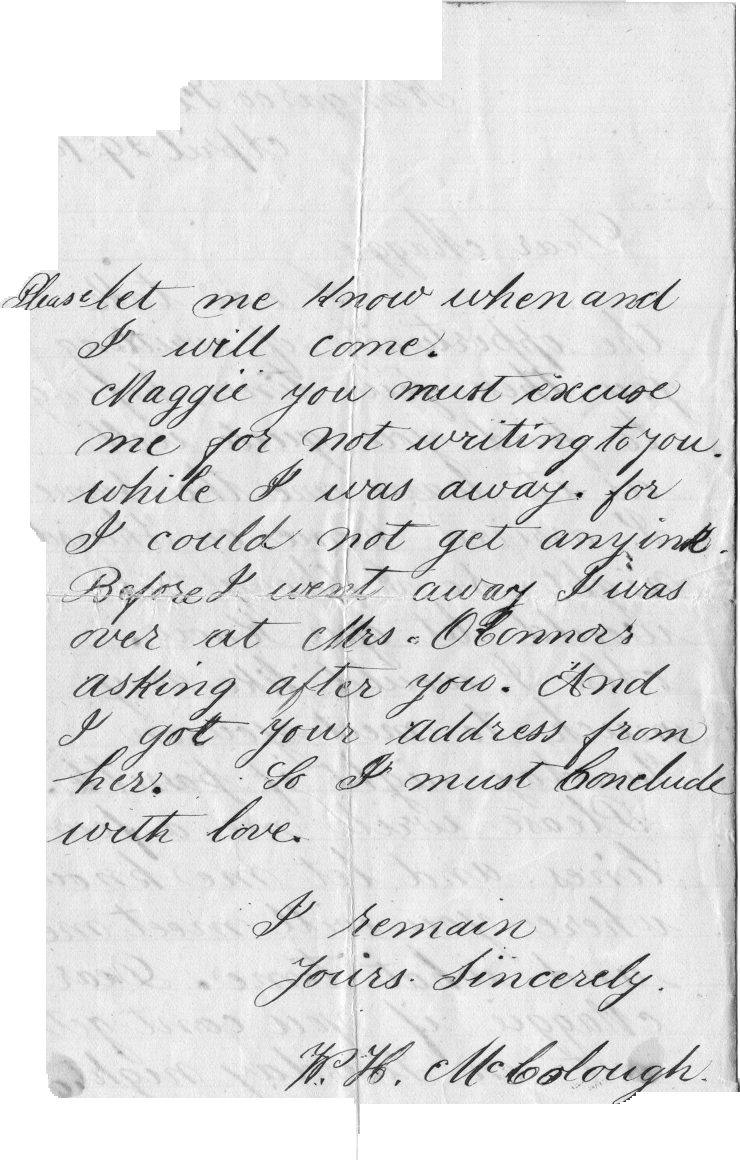 Please let me know when and
I will come.
Maggie you must excuse
me for not writing to you.
while I was away. for
I could not get any ink.
Before I went away I was
over at Mrs. O'Connors
asking after you. And
I got your address from
her. So I must Conclude
with love.
I remain
Yours. Sincerely.
W. H. McColough.